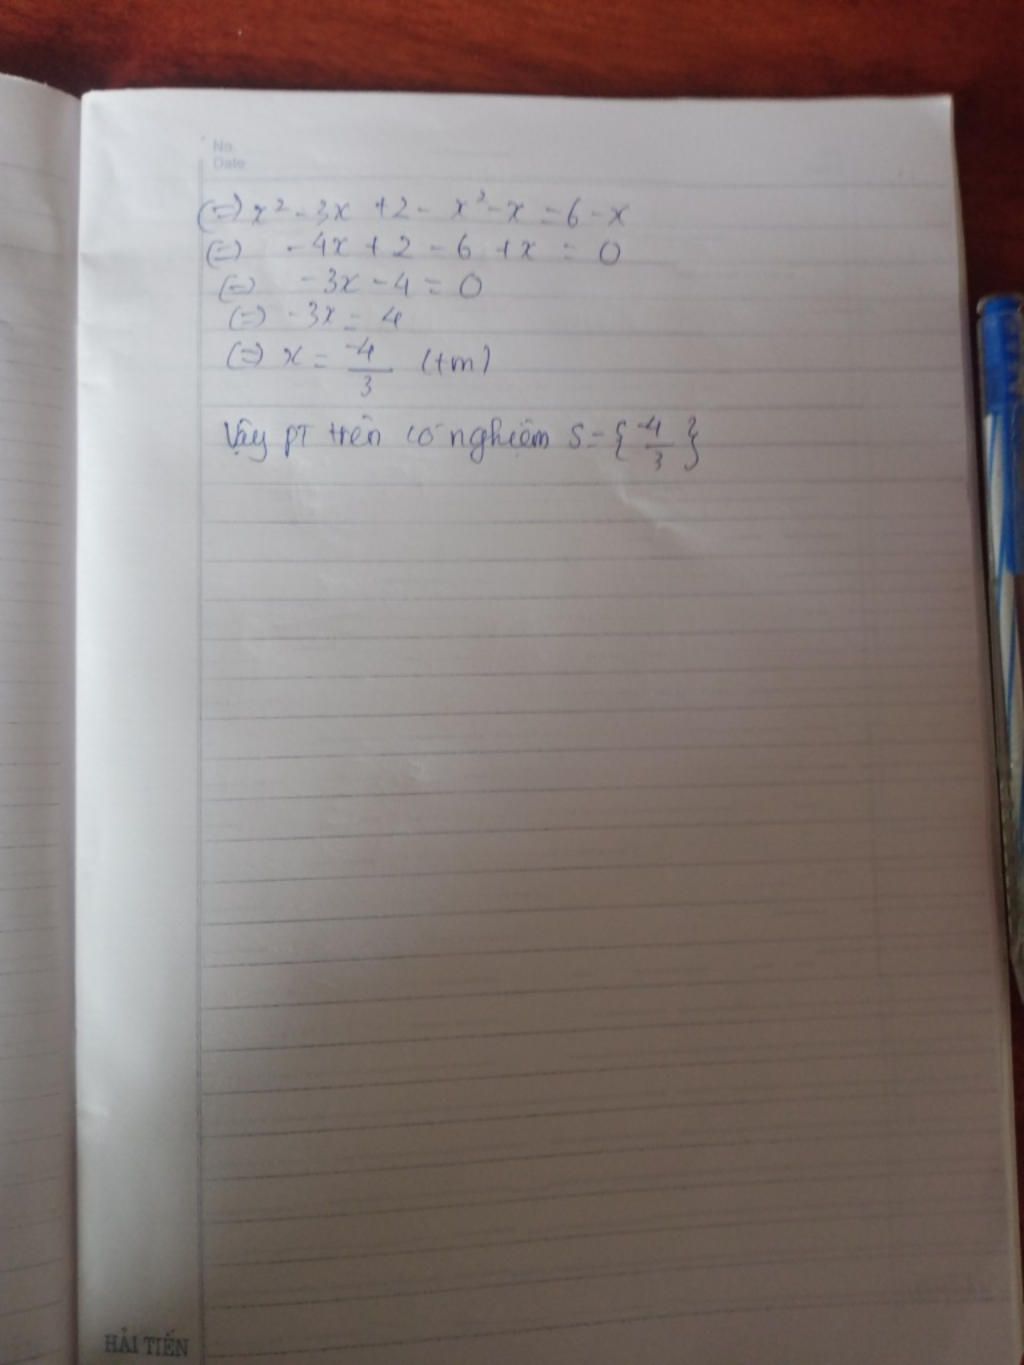 No.
Date
(=) x² - 3x + 2 - x² - x = 6 - x
(=) - 4x + 2 - 6 + x = 0
(=) - 3x - 4 = 0
(=) - 3x = 4
(=) x = -4/3 (tm)
Vậy PT trên có nghiệm S = { -4/3 }
HẢI TIẾN